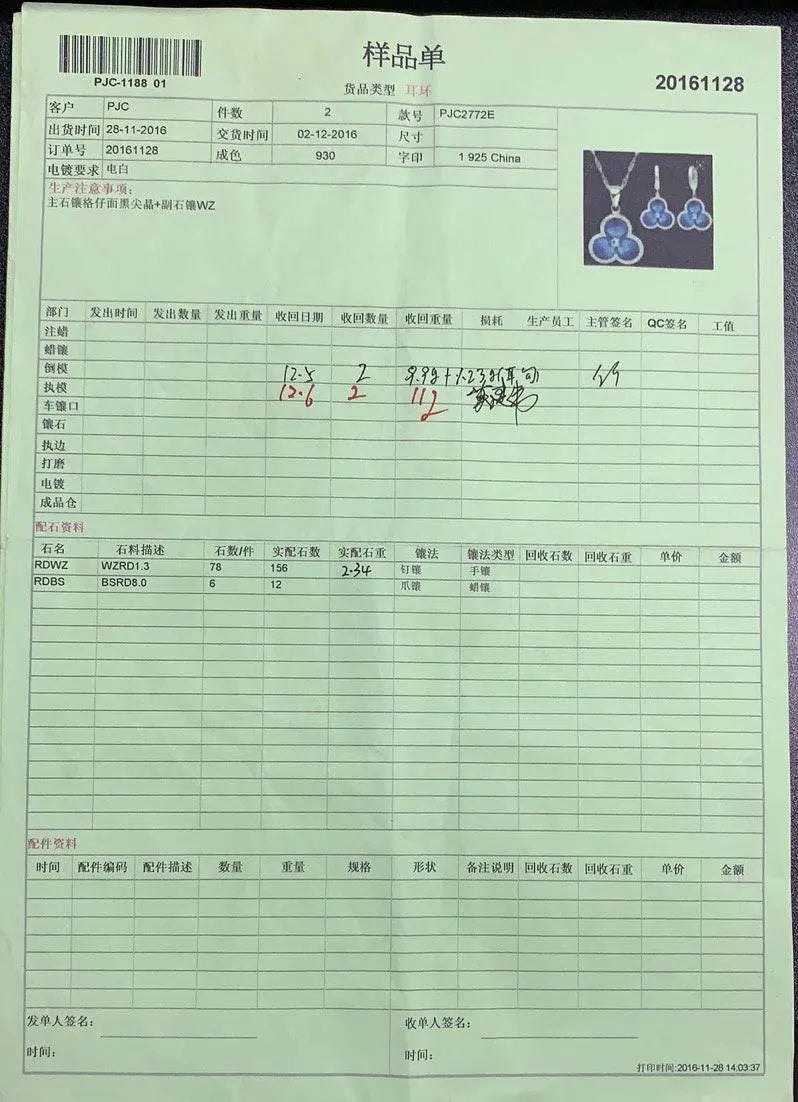 样品单
PJC-1188 01
货品类型 耳环
20161128
客户 PJC 件数 2 款号 PJC2772E
出货时间 28-11-2016 交货时间 02-12-2016 尺寸
订单号 20161128 成色 930 字印 1 925 China
电镀要求 电白
生产注意事项:
主石镶格仔面黑尖晶+副石镶WZ
部门 发出时间 发出数量 发出重量 收回日期 收回数量 收回重量 损耗 生产员工 主管签名 QC签名 工值
注蜡
蜡镶
倒模 12.5 2 9.9g+1.23g(耳勾)
执模 12.6 2 112
车镶口
镶石
执边
打磨
电镀
成品仓
配石资料
石名 石料描述 石数/件 实配石数 实配石重 镶法 镶法类型 回收石数 回收石重 单价 金额
RDWZ WZRD1.3 78 156 2.34 钉镶 手镶
RDBS BSRD8.0 6 12 爪镶 蜡镶
配件资料
时间 配件编码 配件描述 数量 重量 规格 形状 备注说明 回收石数 回收石重 单价 金额
发单人签名: 收单人签名:
时间: 时间:
打印时间:2016-11-28 14:03:37